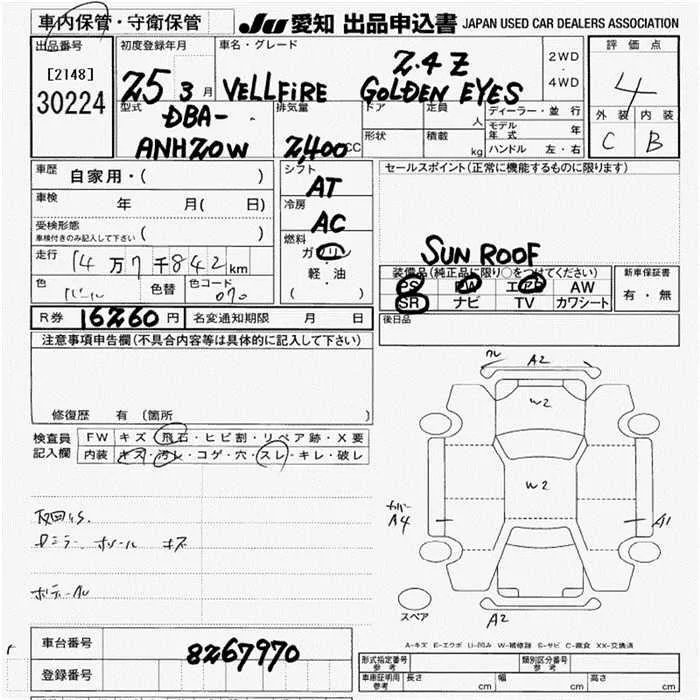 車内保管・守衛保管
JU 愛知 出品申込書 JAPAN USED CAR DEALERS ASSOCIATION
出品番号
[2148]
30224
初度登録年月
25 3 月
車名・グレード
VELLFIRE
2.4 Z
GOLDEN EYES
2WD
・
4WD
評価点
4
外装 内装
C B
型式
DBA-
ANH20W
排気量
2,400 CC
ドア
定員 人
形状
積載 kg
ディーラー・並行
モデル年式 年
ハンドル 左・右
車歴 自家用・( )
車検 年 月( 日)
受検形態
車検付きのみ記入して下さい ( )
走行 14万7千842km
色 色替 色コード 070
シフト
AT
冷房
AC
燃料
ガソリン
・
軽・油
( )
セールスポイント(正常に機能するものに限ります)
SUN ROOF
装備品(純正品に限り○をつけてください)
PS PW エアB AW
SR ナビ TV カワシート
新車保証書
有・無
R券 16260 円 名変通知期限 月 日
後日品
注意事項申告欄(不具合内容等は具体的に記入して下さい)
修復歴 有 〔箇所 〕
検査員
記入欄
FW キズ・飛石・ヒビ割・リペア跡・X要
内装 キズ・汚レ・コゲ・穴・スレ・キレ・破レ
A2
W2
W2
A4
A1
A2
スペア
A-キズ E-エクボ U-凹み W-補修跡 S-サビ C-腐食 XX-交換済
車台番号 8267970
登録番号
形式指定番号
参考
類別区分番号
参考
車庫証明用
参考
長さ cm 幅 cm 高さ cm